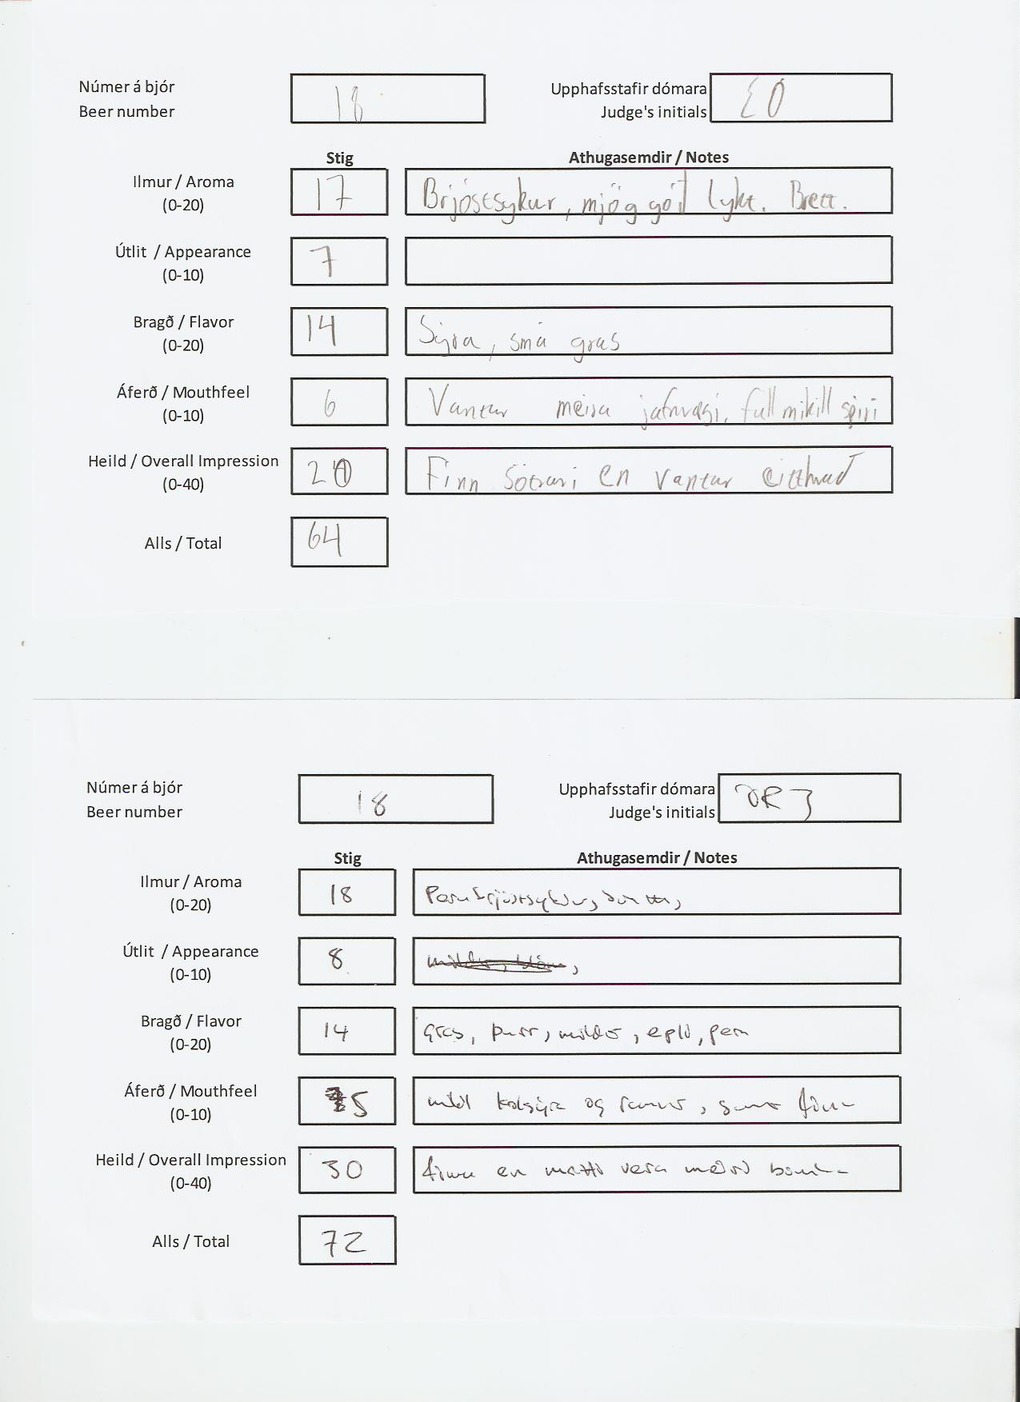 Númer á bjór
Beer number
18
Upphafsstafir dómara
Judge's initials
EO
Stig
Athugasemdir / Notes
Ilmur / Aroma
(0-20)
17
Brjóstsykur, mjög góð lykt. Brett.
Útlit / Appearance
(0-10)
7
Bragð / Flavor
(0-20)
14
Sýra, smá gras
Áferð / Mouthfeel
(0-10)
6
Vantar meira jafnvægi, full mikill spíri
Heild / Overall Impression
(0-40)
20
Fínn sötrari en vantar eitthvað
Alls / Total
64
Númer á bjór
Beer number
18
Upphafsstafir dómara
Judge's initials
Stig
Athugasemdir / Notes
Ilmur / Aroma
(0-20)
18
Útlit / Appearance
(0-10)
8
Bragð / Flavor
(0-20)
14
gras, þurr, mildur, epli,
Áferð / Mouthfeel
(0-10)
5
kolsýra og
Heild / Overall Impression
(0-40)
30
fínn en mætti vera meiri
Alls / Total
72